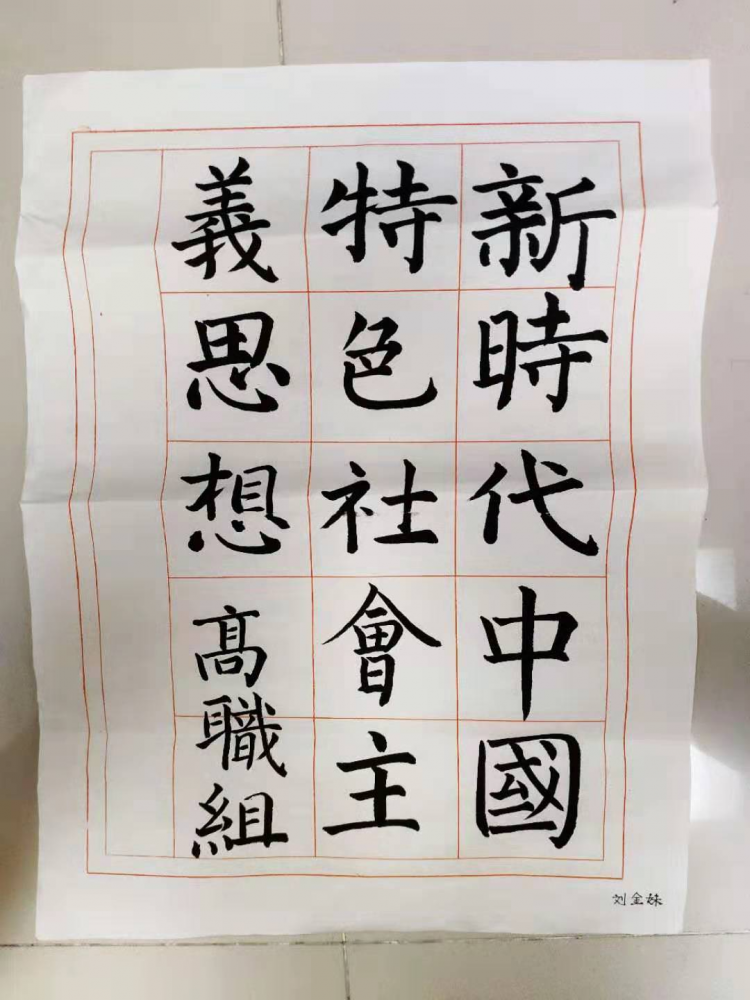 新時代中國
特色社會主
義思想
高職組
刘金妹